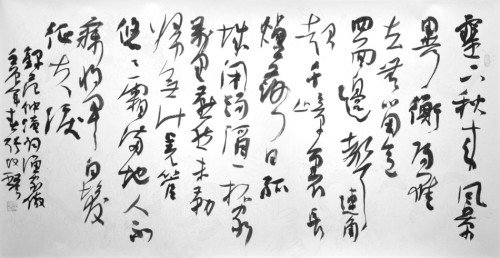 塞下秋来風景
異衡陽雁
去無留意
四面邊聲連角
起千嶂里長
煙落日孤
城閉濁酒一杯家
萬里燕然未勒
歸無計羌管
悠悠霜滿地人不
寐將軍白髮
征夫淚
范仲淹詞漁家傲
年春